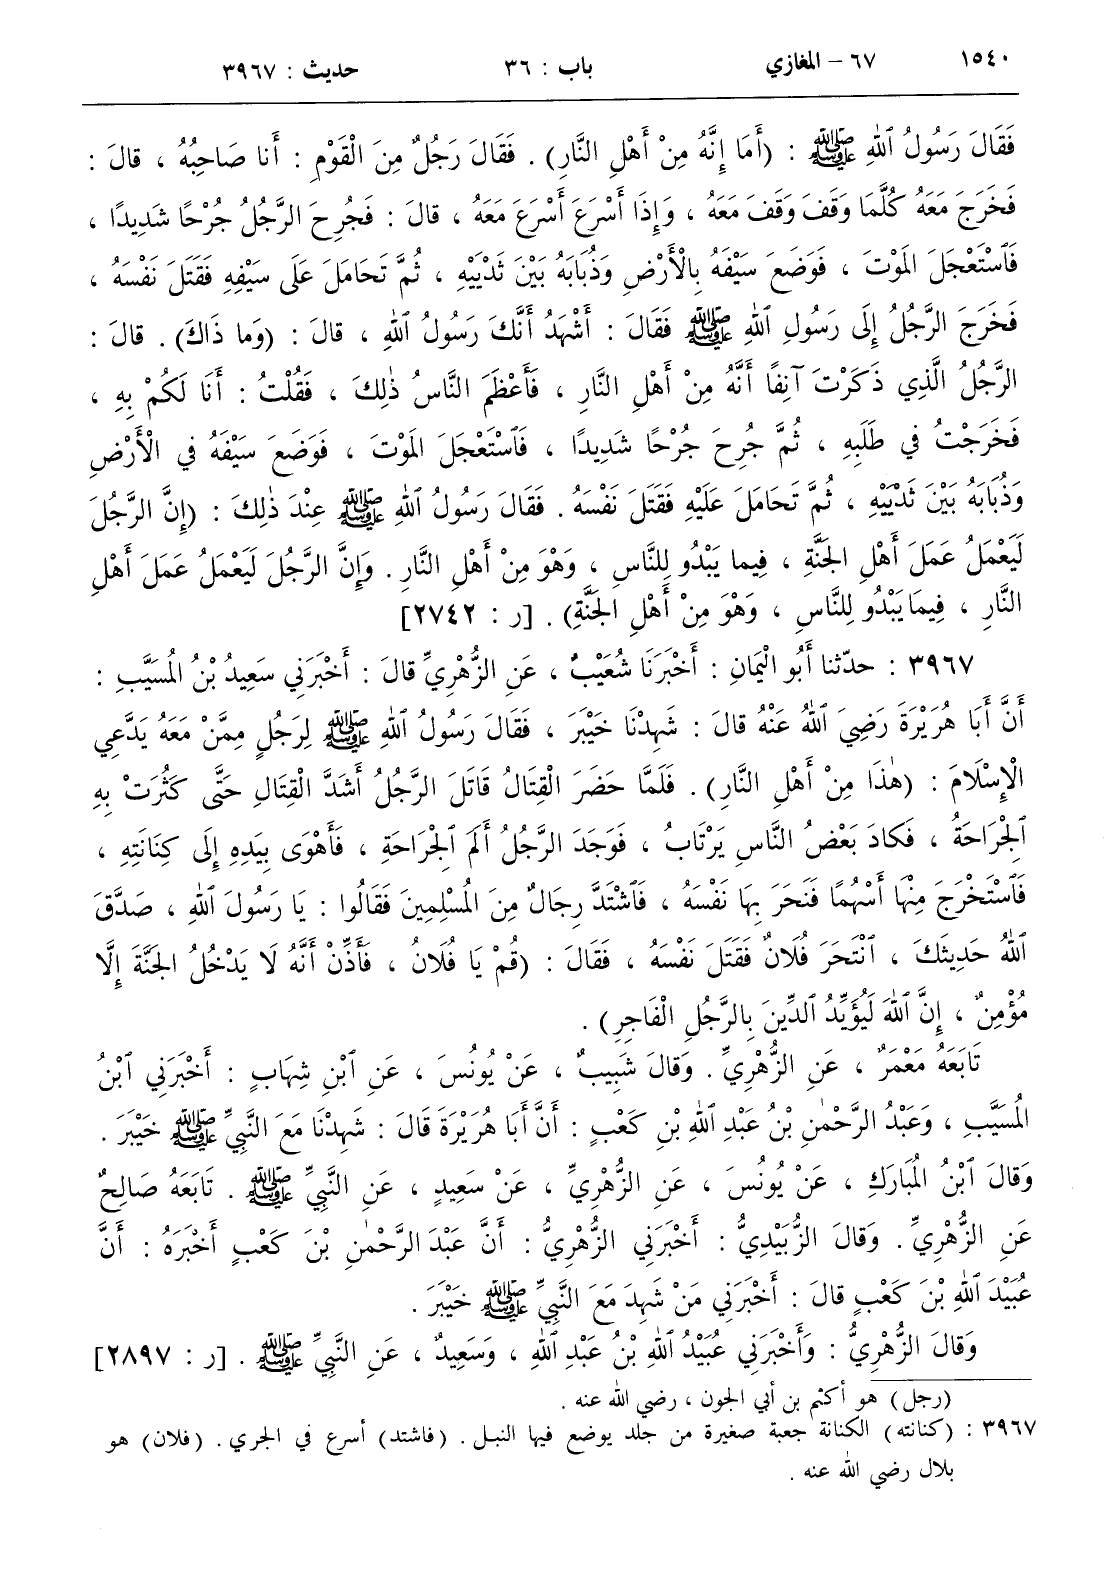 ١٥٤٠ ٦٧ – المغازي باب : ٣٦ حديث : ٣٩٦٧
فَقَالَ رَسُولُ ٱللهِ ﷺ : (أَمَا إِنَّهُ مِنْ أَهْلِ النَّارِ) . فَقَالَ رَجُلٌ مِنَ الْقَوْمِ : أَنا صَاحِبُهُ ، قالَ :
فَخَرَجَ مَعَهُ كُلَّمَا وَقَفَ وَقَفَ مَعَهُ ، وَإِذَا أَسْرَعَ أَسْرَعَ مَعَهُ ، قالَ : فَجُرِحَ الرَّجُلُ جُرْحًا شَدِيدًا ،
فَٱسْتَعْجَلَ المَوْتَ ، فَوَضَعَ سَيْفَهُ بِالْأَرْضِ وَذُبَابَهُ بَيْنَ ثَدْيَيْهِ ، ثُمَّ تَحَامَلَ عَلَى سَيْفِهِ فَقَتَلَ نَفْسَهُ ،
فَخَرَجَ الرَّجُلُ إِلَى رَسُولِ ٱللهِ ﷺ فَقَالَ : أَشْهَدُ أَنَّكَ رَسُولُ ٱللهِ ، قالَ : (وَما ذَاكَ) . قالَ :
الرَّجُلُ الَّذِي ذَكَرْتَ آنِفًا أَنَّهُ مِنْ أَهْلِ النَّارِ ، فَأَعْظَمَ النَّاسُ ذٰلِكَ ، فَقُلْتُ : أَنَا لَكُمْ بِهِ ،
فَخَرَجْتُ في طَلَبِهِ ، ثُمَّ جُرِحَ جُرْحًا شَدِيدًا ، فَٱسْتَعْجَلَ المَوْتَ ، فَوَضَعَ سَيْفَهُ في الْأَرْضِ
وَذُبَابَهُ بَيْنَ ثَدْيَيْهِ ، ثُمَّ تَحَامَلَ عَلَيْهِ فَقَتَلَ نَفْسَهُ . فَقَالَ رَسُولُ ٱللهِ ﷺ عِنْدَ ذٰلِكَ : (إِنَّ الرَّجُلَ
لَيَعْمَلُ عَمَلَ أَهْلِ الجَنَّةِ ، فِيما يَبْدُو لِلنَّاسِ ، وَهْوَ مِنْ أَهْلِ النَّارِ . وَإِنَّ الرَّجُلَ لَيَعْمَلُ عَمَلَ أَهْلِ
النَّارِ ، فِيمَا يَبْدُو لِلنَّاسِ ، وَهْوَ مِنْ أَهْلِ الجَنَّةِ) . [ر : ٢٧٤٢]
٣٩٦٧ : حدّثنا أَبُو الْيَمانِ : أَخْبَرَنَا شُعَيْبٌ ، عَنِ الزُّهْرِيِّ قالَ : أَخْبَرَنِي سَعِيدُ بْنُ المُسَيَّبِ :
أَنَّ أَبَا هُرَيْرَةَ رَضِيَ ٱللهُ عَنْهُ قالَ : شَهِدْنَا خَيْبَرَ ، فَقَالَ رَسُولُ ٱللهِ ﷺ لِرَجُلٍ مِمَّنْ مَعَهُ يَدَّعِي
الْإِسْلَامَ : (هٰذَا مِنْ أَهْلِ النَّارِ) . فَلَمَّا حَضَرَ الْقِتَالُ قَاتَلَ الرَّجُلُ أَشَدَّ الْقِتَالِ حَتَّى كَثُرَتْ بِهِ
ٱلْجِرَاحَةُ ، فَكادَ بَعْضُ النَّاسِ يَرْتَابُ ، فَوَجَدَ الرَّجُلُ أَلَمَ ٱلْجِرَاحَةِ ، فَأَهْوَى بِيَدِهِ إِلَى كِنَانَتِهِ ،
فَٱسْتَخْرَجَ مِنْهَا أَسْهُمًا فَنَحَرَ بِهَا نَفْسَهُ ، فَٱشْتَدَّ رِجَالٌ مِنَ المُسْلِمِينَ فَقَالُوا : يَا رَسُولَ ٱللهِ ، صَدَّقَ
ٱللهُ حَدِيثَكَ ، ٱنْتَحَرَ فُلَانٌ فَقَتَلَ نَفْسَهُ ، فَقَالَ : (قُمْ يَا فُلَانُ ، فَأَذِّنْ أَنَّهُ لَا يَدْخُلُ الجَنَّةَ إِلَّا
مُؤْمِنٌ ، إِنَّ ٱللهَ لَيُؤَيِّدُ ٱلدِّينَ بِالرَّجُلِ الْفَاجِرِ) .
تَابَعَهُ مَعْمَرٌ ، عَنِ الزُّهْرِيِّ . وَقالَ شَبِيبٌ ، عَنْ يُونُسَ ، عَنِ ٱبْنِ شِهَابٍ : أَخْبَرَنِي ٱبْنُ
المُسَيَّبِ ، وَعَبْدُ الرَّحْمٰنِ بْنُ عَبْدِ ٱللهِ بْنِ كَعْبٍ : أَنَّ أَبَا هُرَيْرَةَ قَالَ : شَهِدْنَا مَعَ النَّبِيِّ ﷺ خَيْبَرَ .
وَقالَ ٱبْنُ المُبَارَكِ ، عَنْ يُونُسَ ، عَنِ الزُّهْرِيِّ ، عَنْ سَعِيدٍ ، عَنِ النَّبِيِّ ﷺ . تَابَعَهُ صَالِحٌ
عَنِ الزُّهْرِيِّ . وَقالَ الزُّبَيْدِيُّ : أَخْبَرَنِي الزُّهْرِيُّ : أَنَّ عَبْدَ الرَّحْمٰنِ بْنَ كَعْبٍ أَخْبَرَهُ : أَنَّ
عُبَيْدَ ٱللهِ بْنَ كَعْبٍ قالَ : أَخْبَرَنِي مَنْ شَهِدَ مَعَ النَّبِيِّ ﷺ خَيْبَرَ .
وَقالَ الزُّهْرِيُّ : وَأَخْبَرَنِي عُبَيْدُ ٱللهِ بْنُ عَبْدِ ٱللهِ ، وَسَعِيدٌ ، عَنِ النَّبِيِّ ﷺ . [ر : ٢٨٩٧]
(رجل) هو أكثم بن أبي الجون ، رضي الله عنه .
٣٩٦٧ : (كنانته) الكنانة جعبة صغيرة من جلد يوضع فيها النبل . (فاشتد) أسرع في الجري . (فلان) هو
بلال رضي الله عنه .